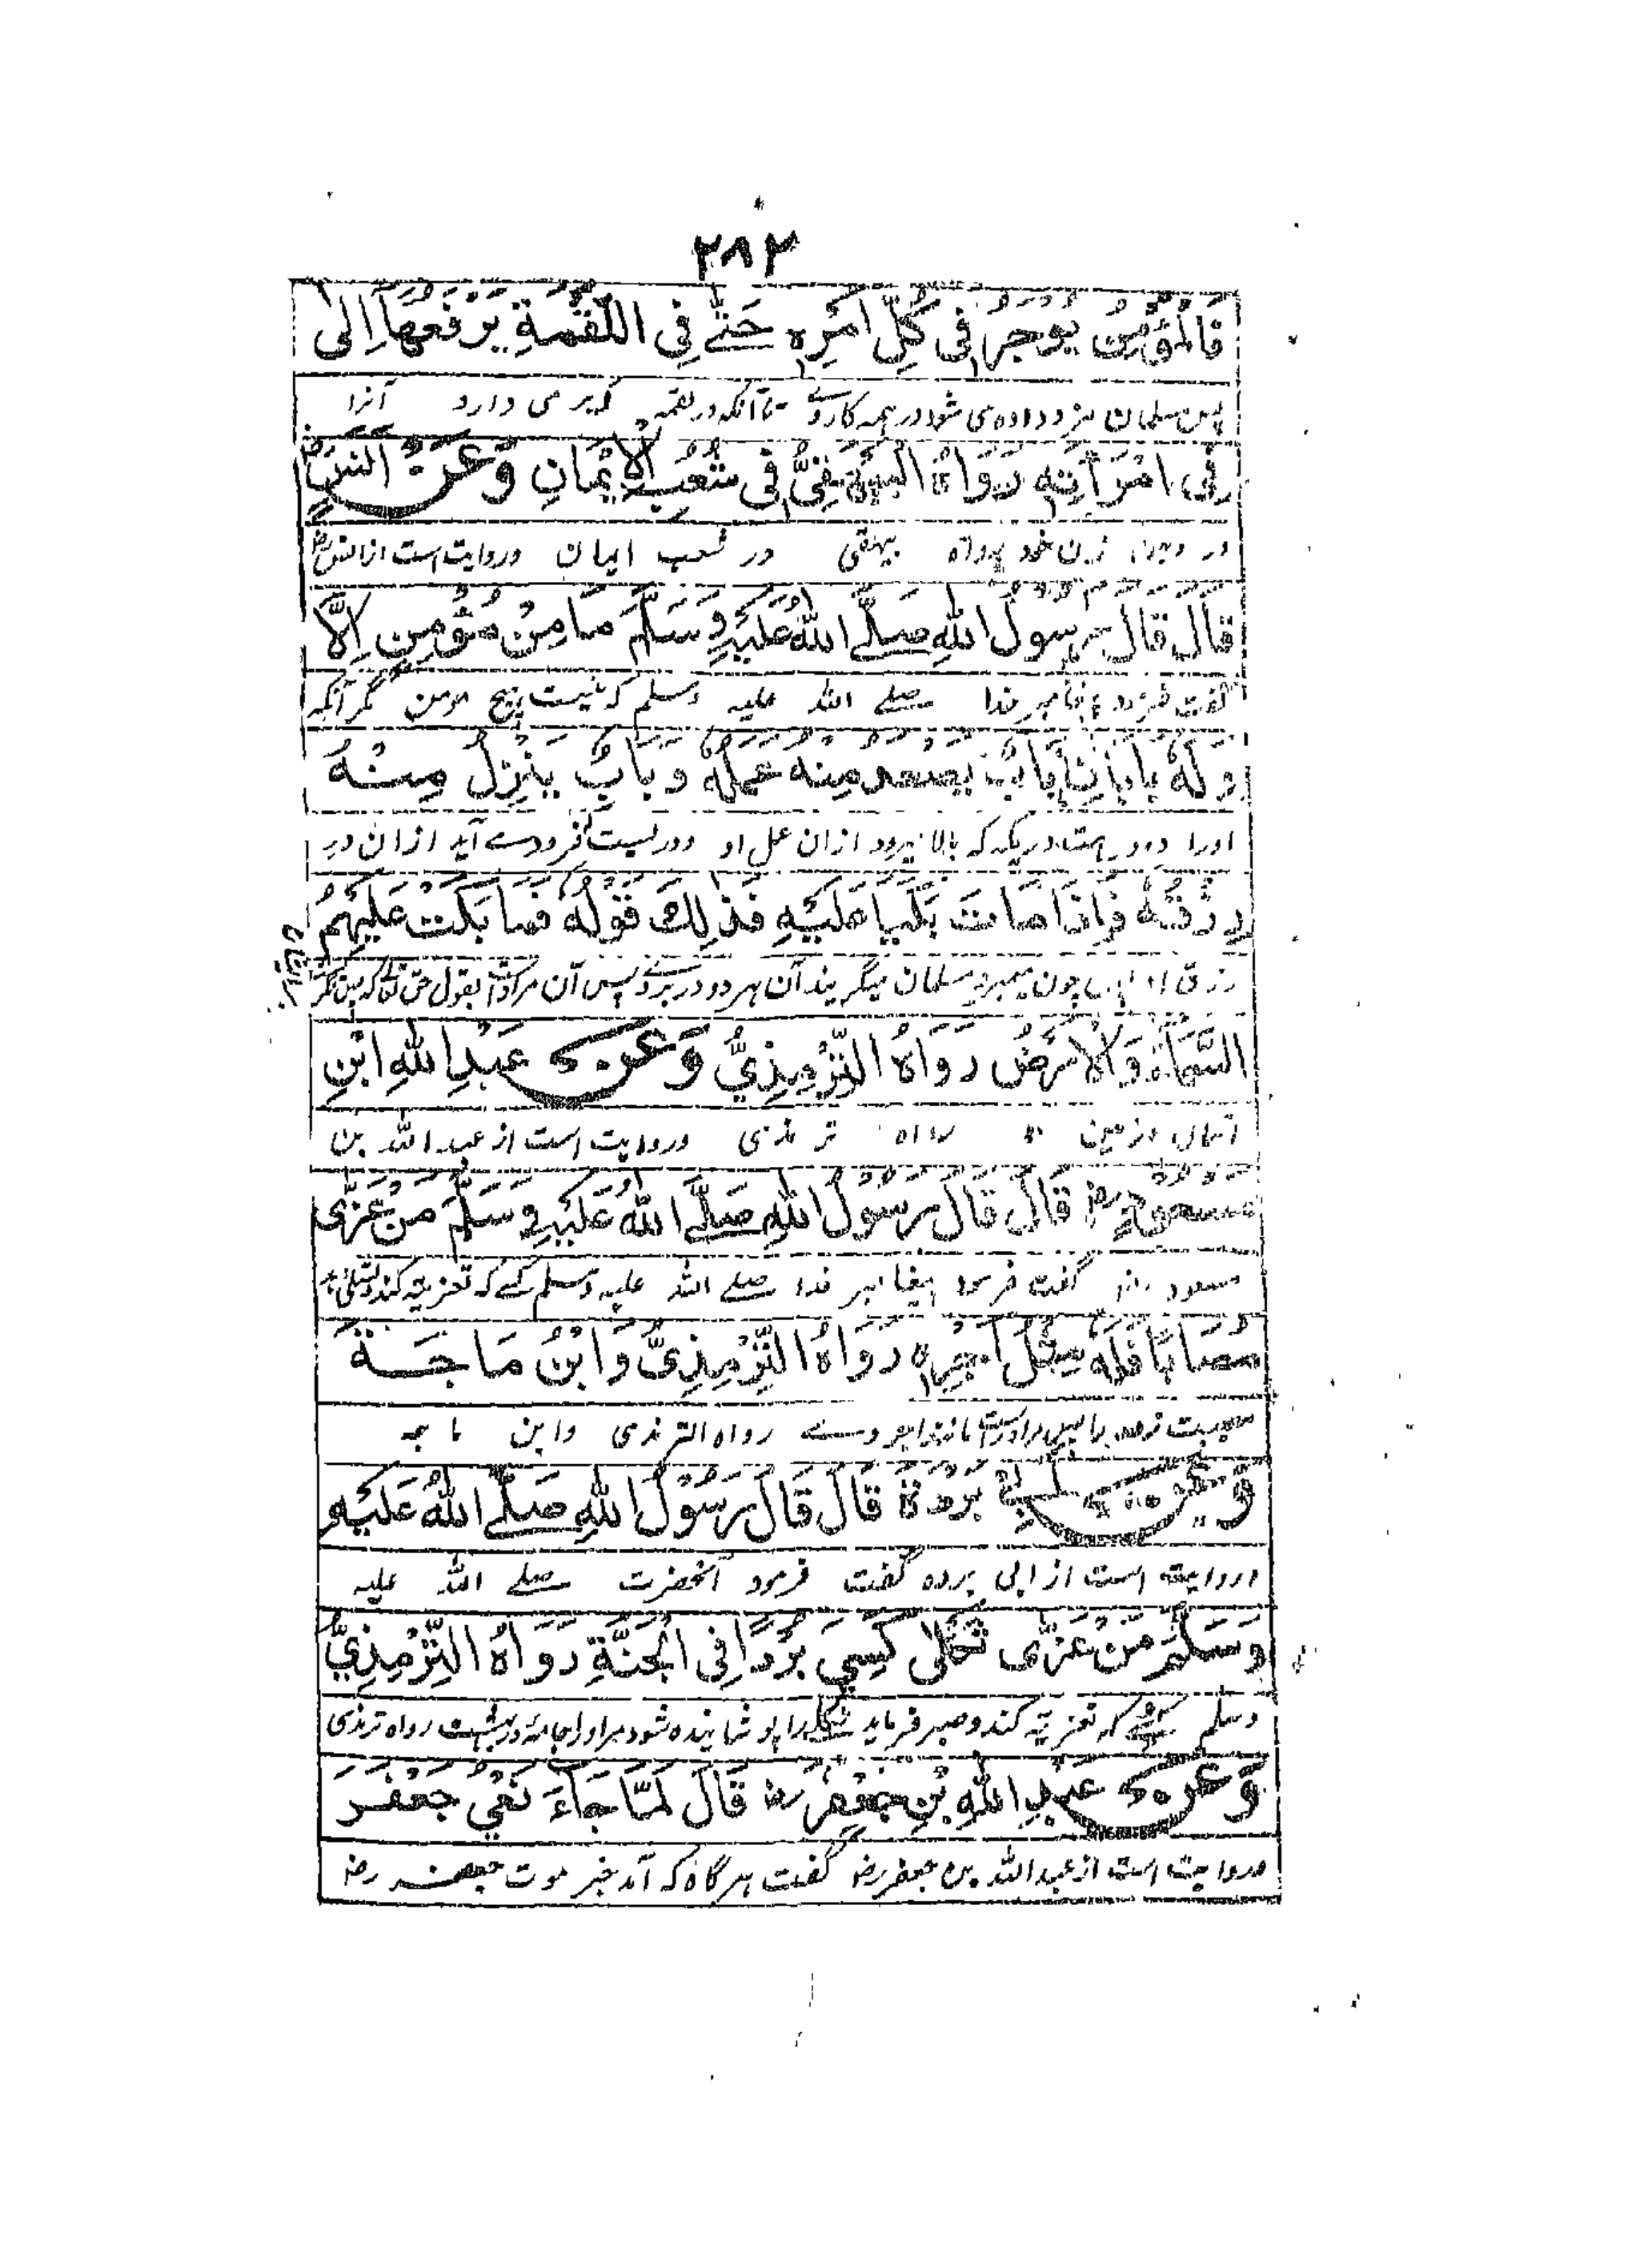 ۲۸۳
فَالْمُؤْمِنُ يُوْجَرُ فِي كُلِّ اَمْرِهٖ حَتّٰے فِي اللُّقْمَةِ يَرْفَعُهَا اِلٰى
پس مسلمان مزد داده می شود در همه کار وے تا آنکه در لقمه که بر می دارد آنرا
فِي امْرَأَتِهٖ رَوَاهُ الْبَيْهَقِيُّ فِي شُعَبِ الْاِيْمَانِ وَعَنْ اَنَسٍ رض
در دهن زن خود رواه بیهقی در شعب ایمان وروایت است از انس رض
قَالَ قَالَ رَسُوْلُ اللهِ صَلَّے اللهُ عَلَيْهِ وَسَلَّمَ مَا مِنْ مُؤْمِنٍ اِلَّا
گفت فرمود پیغامبر خدا صلے الله علیه وسلم که نیست هیچ مومن مگر آنکه
وَلَهٗ بَابَانِ بَابٌ يَصْعَدُ مِنْهُ عَمَلُهٗ وَبَابٌ يَنْزِلُ مِنْهُ
اورا دو در هست در یکه که بالا میرود ازان عمل او ودر یست که فرودے آید ازان در
رِزْقُهٗ فَاِذَا مَاتَ بَكَيَا عَلَيْهِ فَذٰلِكَ قَوْلُهٗ فَمَا بَكَتْ عَلَيْهِمُ
رزق او پس چون بمیرد مسلمان میگریند آن هر دو در بروے پس آن بقول حق
السَّمَاءُ وَالْاَرْضُ رَوَاهُ التِّرْمِذِيُّ وَعَنْ عَبْدِ اللهِ ابْنِ
آسمان وزمین رواه ترمذی وروایت است از عبد الله بن
مَسْعُوْدٍ رض قَالَ قَالَ رَسُوْلُ اللهِ صَلَّے اللهُ عَلَيْهِ وَسَلَّمَ مَنْ عَزّٰى
مسعود رض گفت فرمود پیغامبر خدا صلے الله علیه وسلم کسے که تعزیه کند
مُصَابًا فَلَهٗ مِثْلُ اَجْرِهٖ رَوَاهُ التِّرْمِذِيُّ وَابْنُ مَاجَةَ
مصیبت زده را پس مراوراست مانند اجر وے رواه الترمذی وابن ماجه
وَعَنْ اَبِيْ بَرْزَةَ قَالَ قَالَ رَسُوْلُ اللهِ صَلَّے اللهُ عَلَيْهِ
وروایت است از ابی برده گفت فرمود آنحضرت صلے الله علیه
وَسَلَّمَ مَنْ عَزّٰى ثَكْلٰى كُسِيَ بُرْدًا فِي الْجَنَّةِ رَوَاهُ التِّرْمِذِيُّ
وسلم کسے که تعزیه کند وصبر فرماید ثکلے را پوشانیده شود مراورا جامه در بهشت رواه ترمذی
وَعَنْ عَبْدِ اللهِ بْنِ جَعْفَرٍ رض قَالَ لَمَّا جَاءَ نَعْيُ جَعْفَرَ
وروایت است از عبد الله بن جعفر رض گفت هر گاه که آمد خبر موت جعفر رض